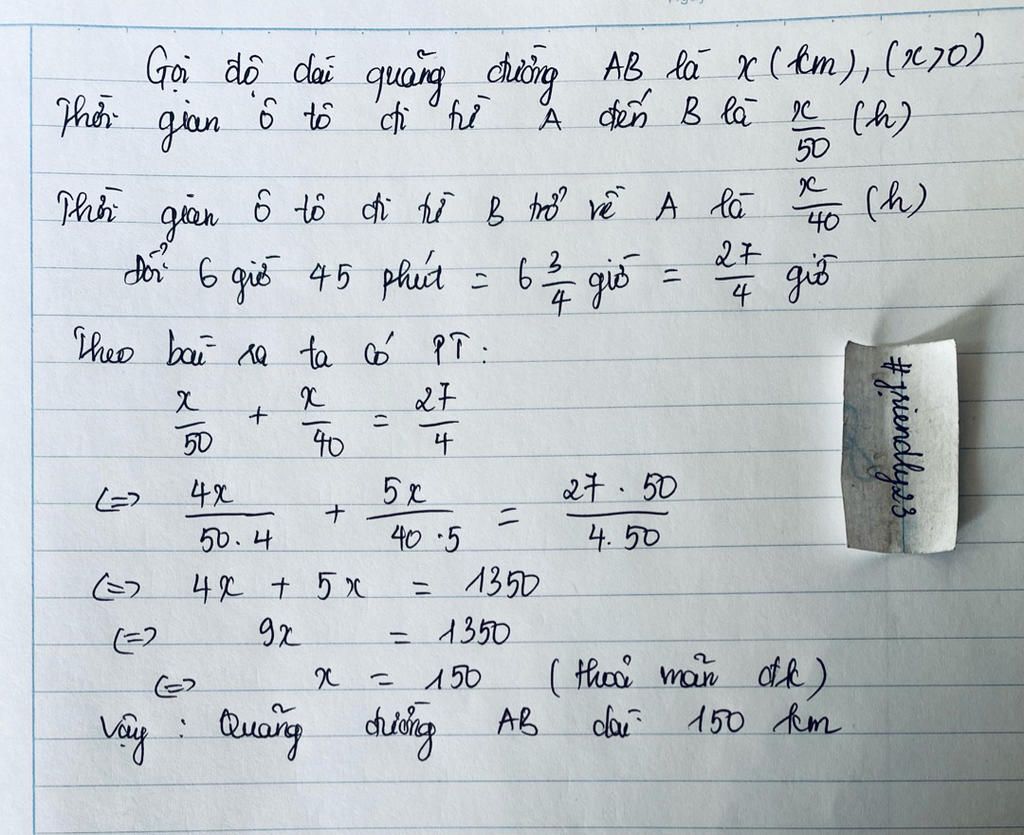 Gọi độ dài quãng đường AB là x (km), (x>0)
Thời gian ô tô đi từ A đến B là x/50 (h)
Thời gian ô tô đi từ B trở về A là x/40 (h)
Đổi 6 giờ 45 phút = 6 3/4 giờ = 27/4 giờ
Theo bài ra ta có PT:
x/50 + x/40 = 27/4
<=> 4x/50.4 + 5x/40.5 = 27.50/4.50
<=> 4x + 5x = 1350
<=> 9x = 1350
<=> x = 150 (thoả mãn đk)
Vậy : Quãng đường AB dài 150 km
#friendly23